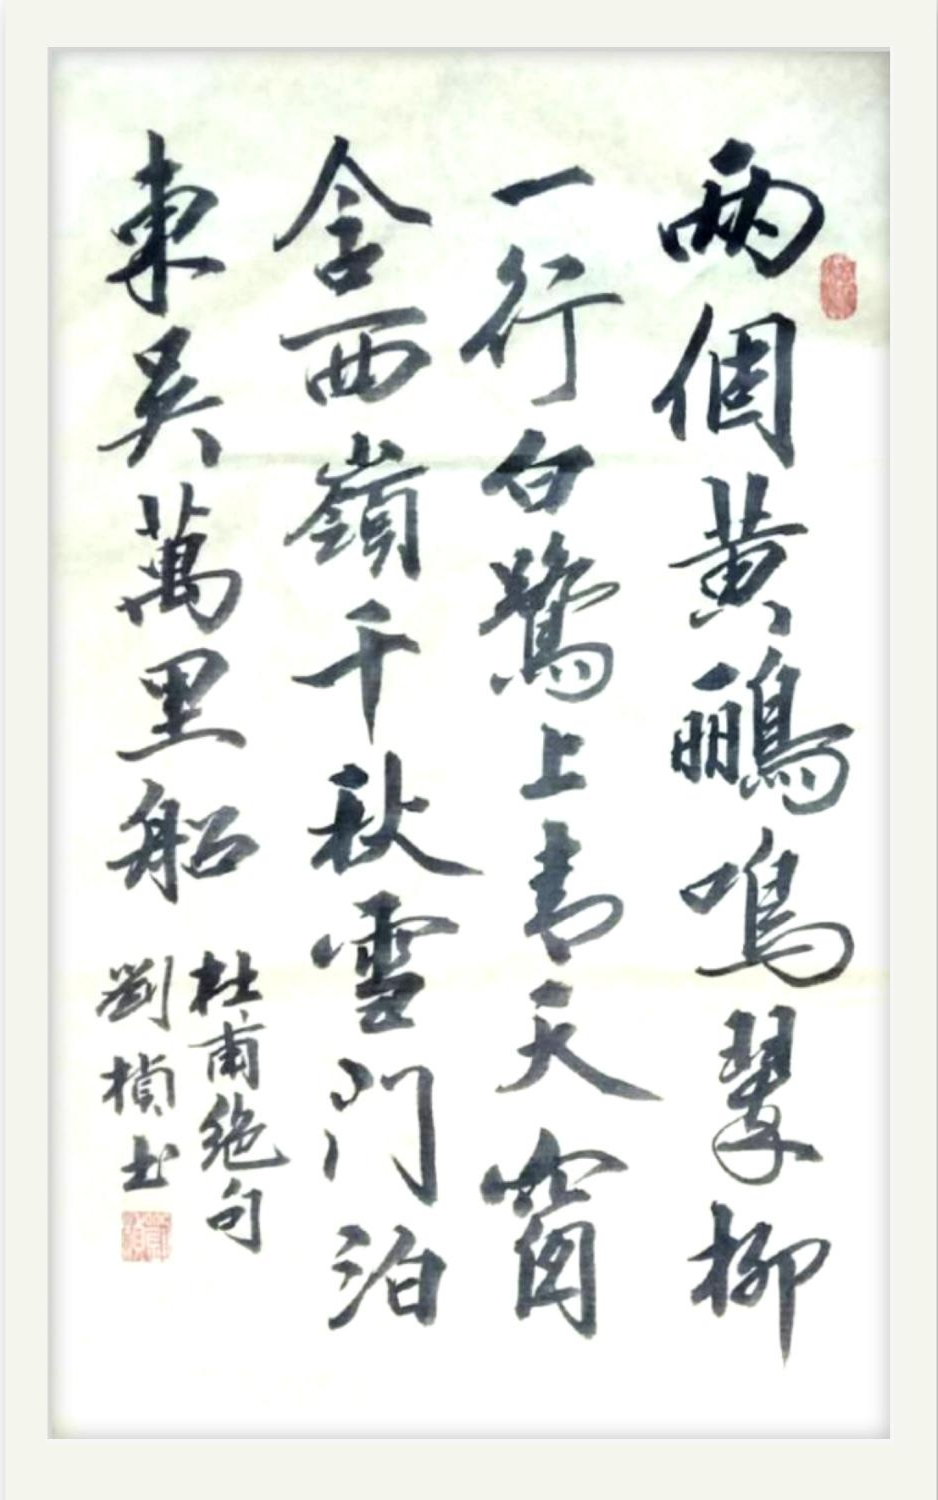 兩個黃鸝鳴翠柳
一行白鷺上青天窗
含西嶺千秋雪門泊
東吳萬里船
杜甫絕句
劉楨書